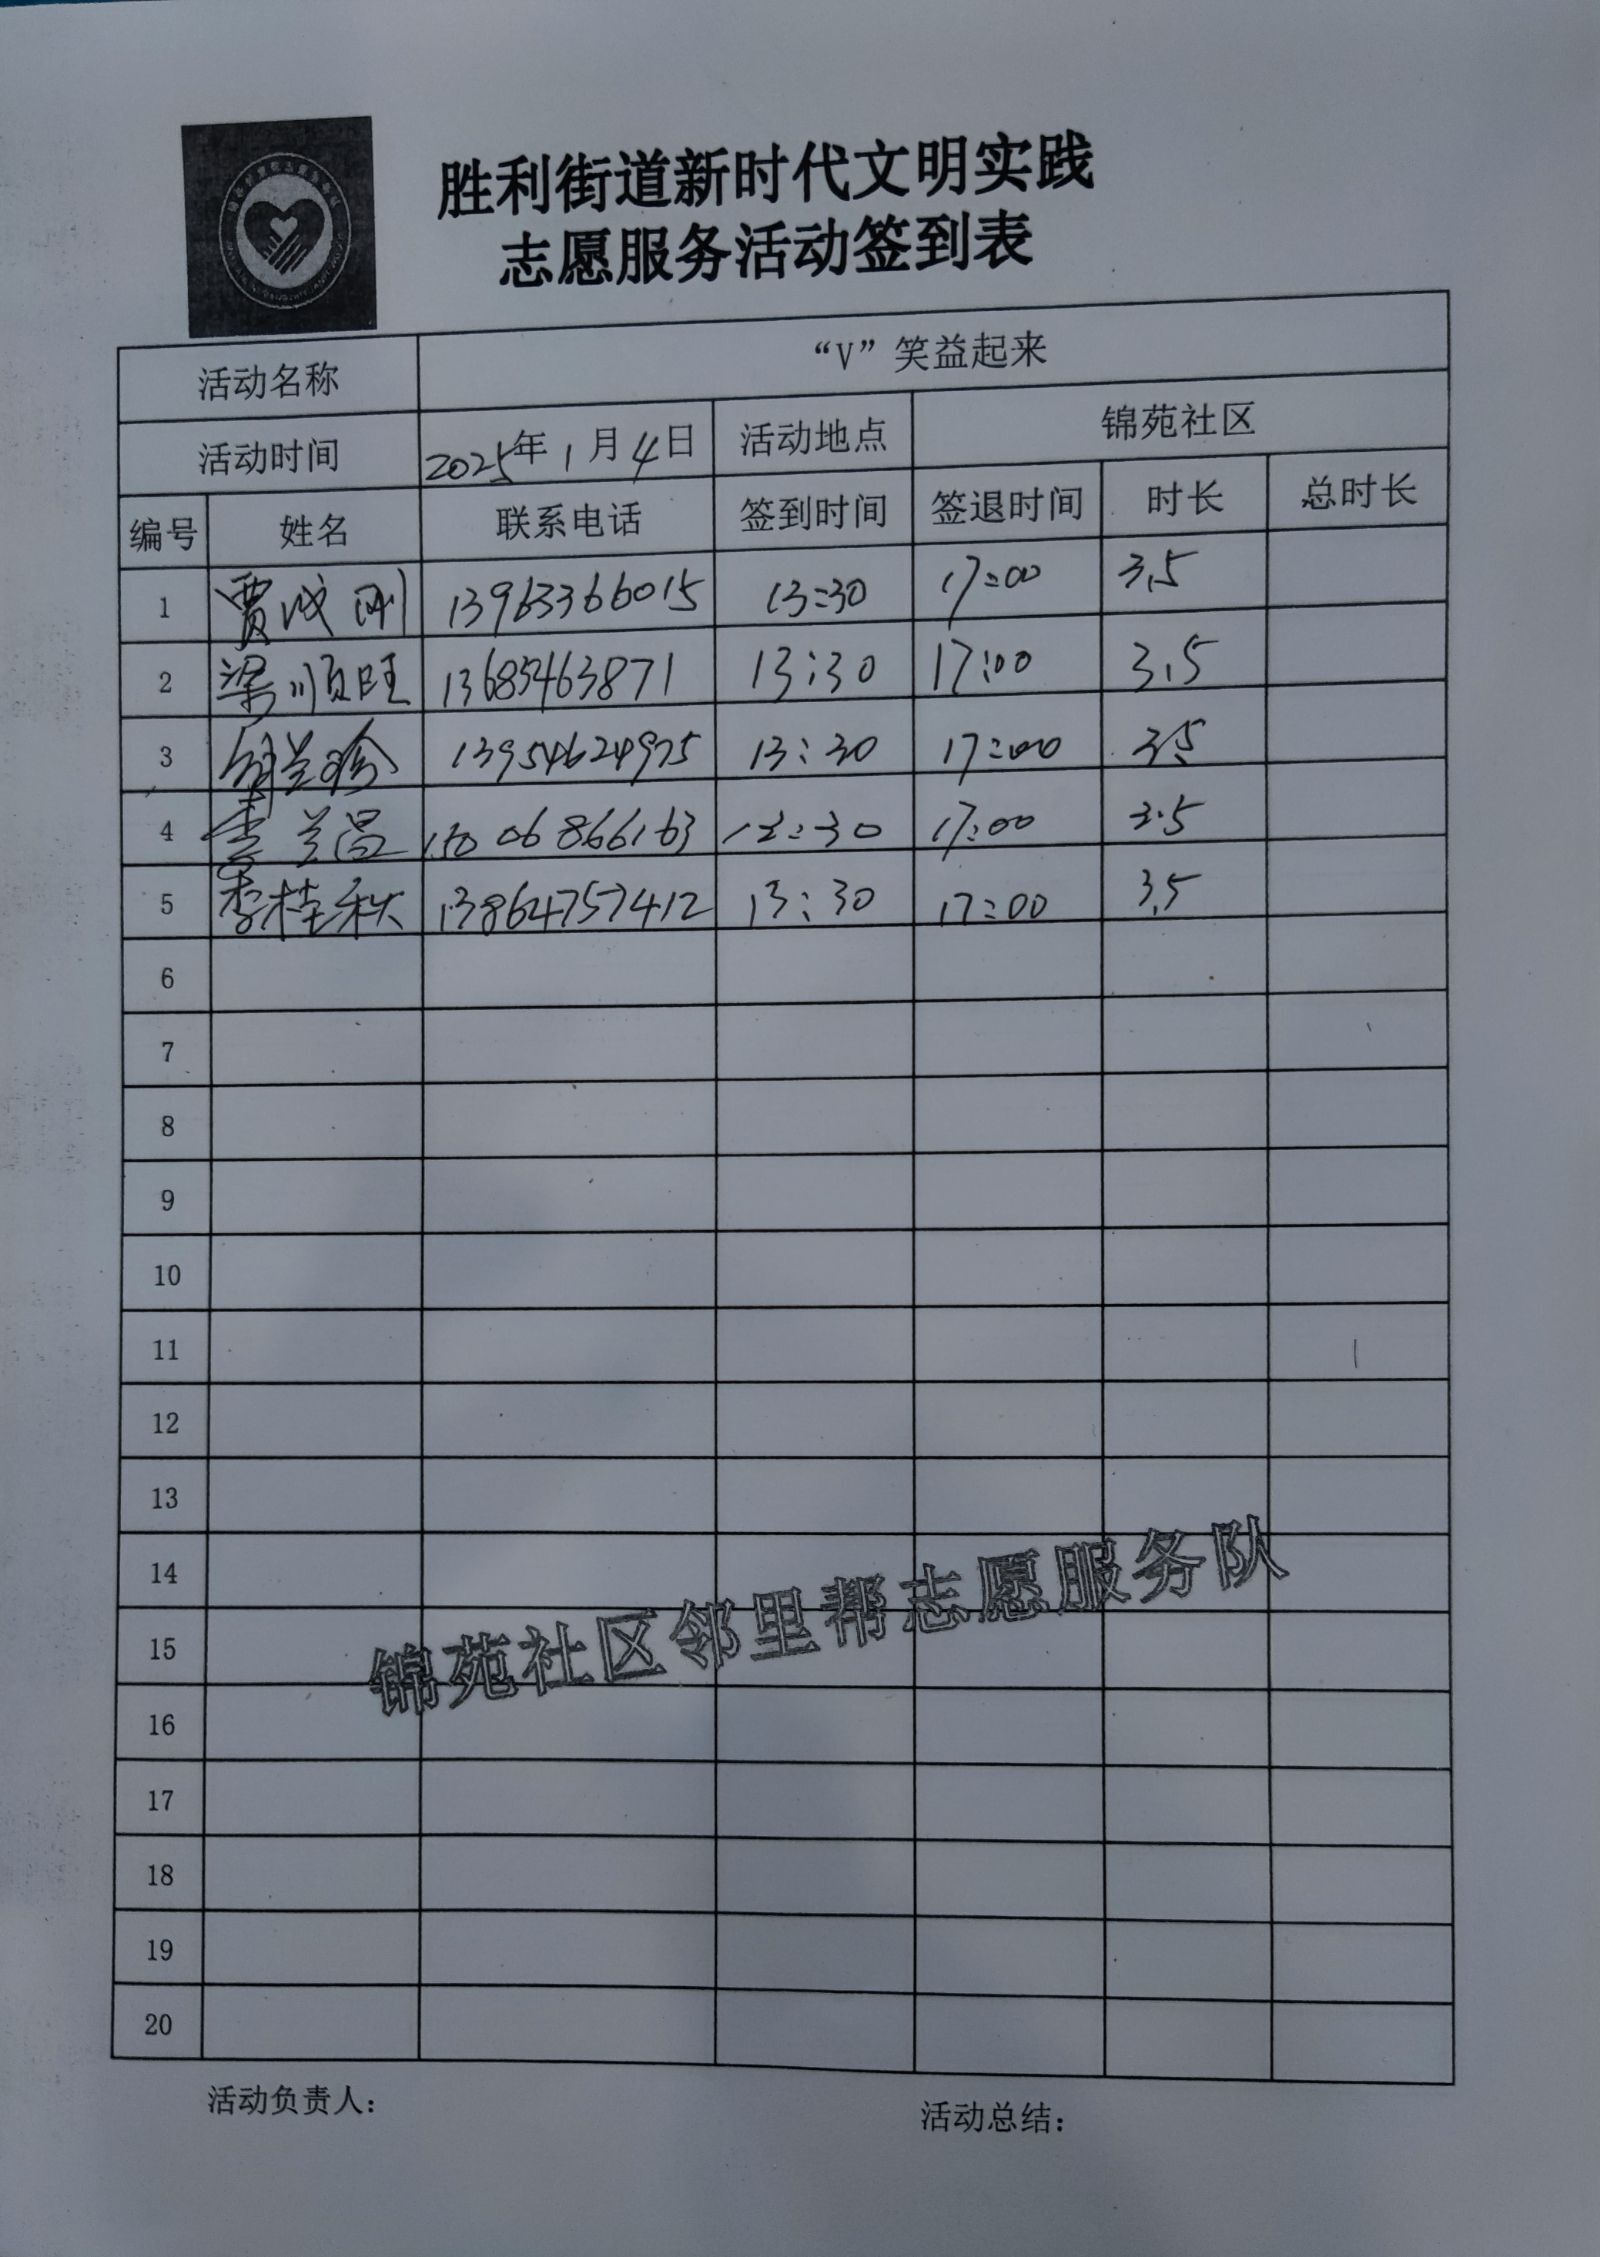 胜利街道新时代文明实践
志愿服务活动签到表
活动名称 “V”笑益起来
活动时间 2025年1月4日 活动地点 锦苑社区
编号 姓名 联系电话 签到时间 签退时间 时长 总时长
1 贾成刚 13963366015 13:30 17:00 3.5
2 梁顺旺 13685463871 13:30 17:00 3.5
3 兰珍 13954624975 13:30 17:00 3.5
4 李兰昌 15006866163 13:30 17:00 3.5
5 李桂秋 13864757412 13:30 17:00 3.5
6
7
8
9
10
11
12
13
14
锦苑社区邻里帮志愿服务队
15
16
17
18
19
20
活动负责人： 活动总结：